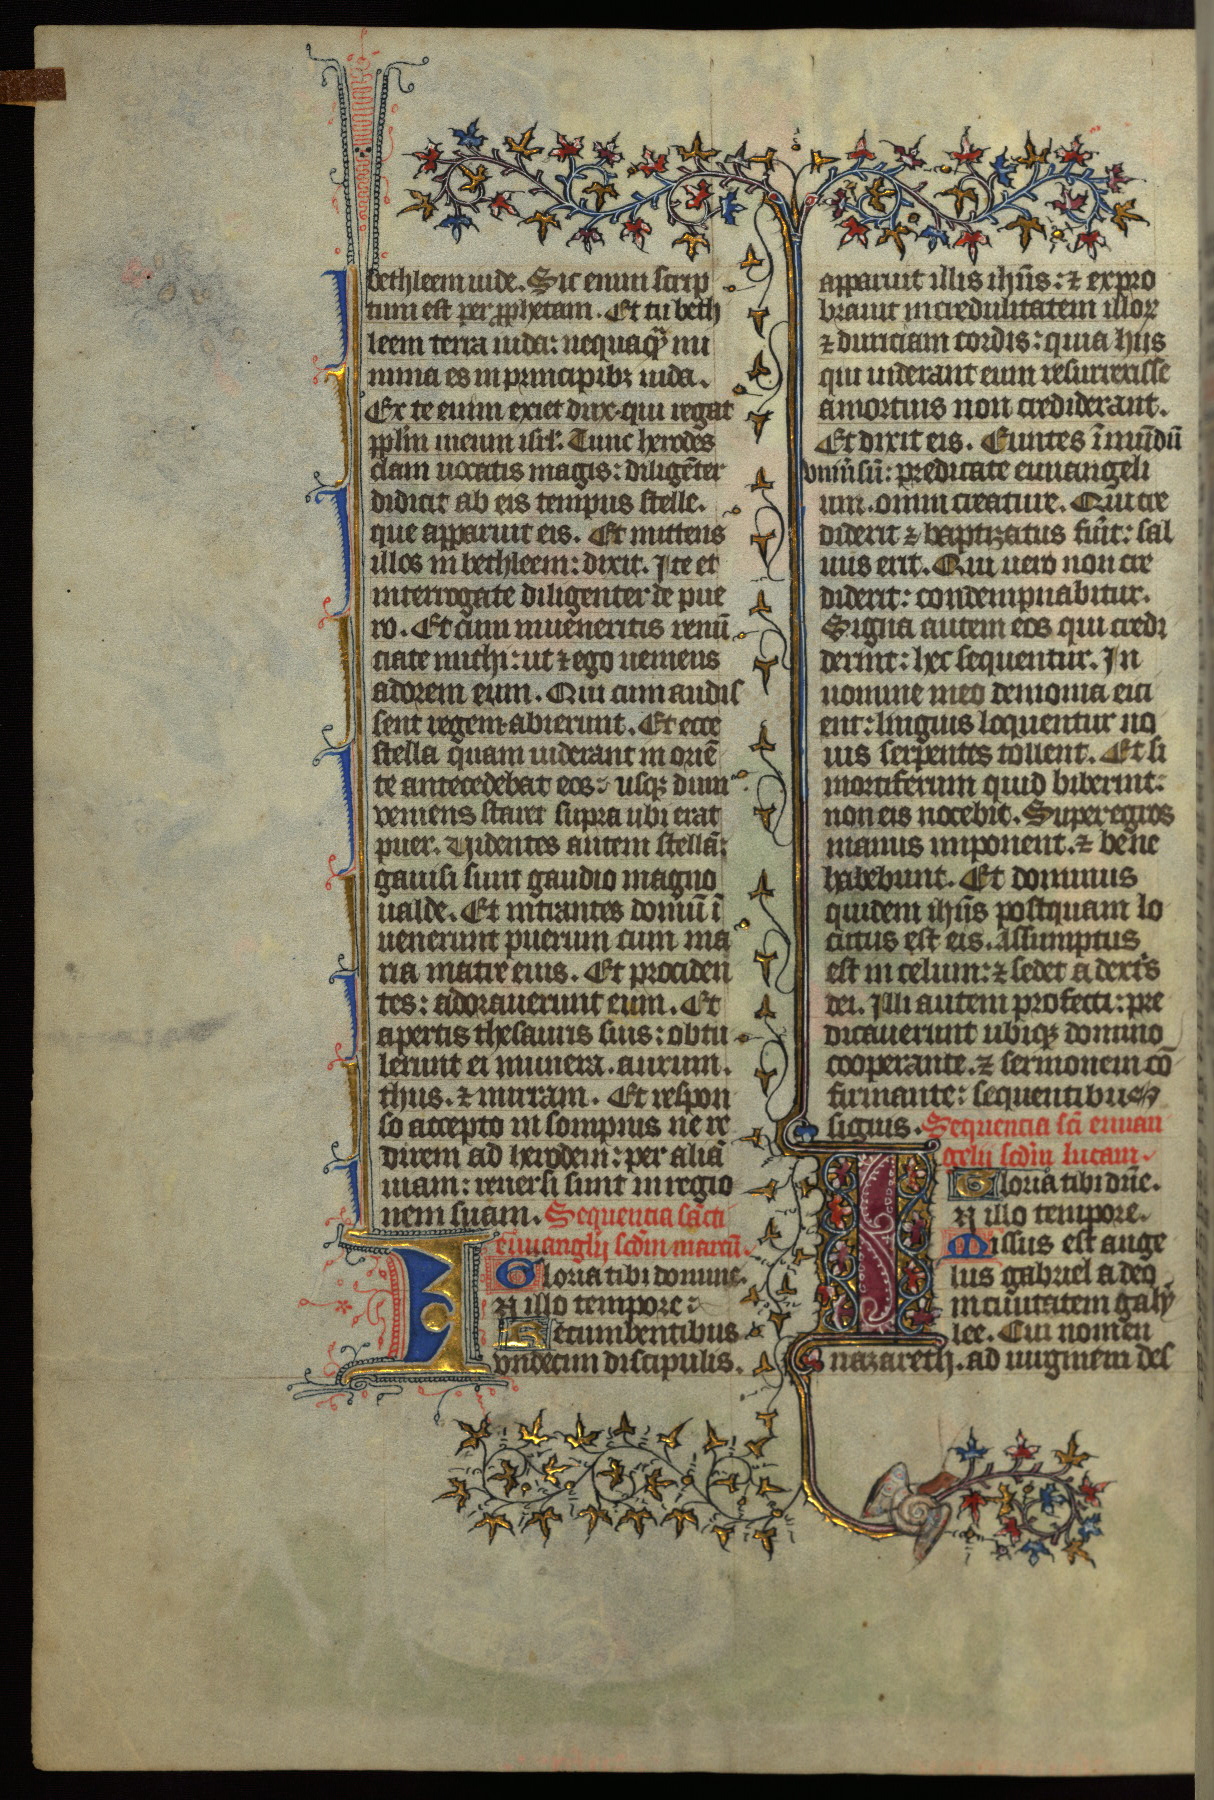 bethleem iude. Sic enim scrip
tum est per ꝓphetam. Et tu beth
leem terra iuda: nequaqͣ mi
nima es in principibꝫ iuda.
Ex te enim exiet dux qui regat
pplm̄ meum isrl̓. Tunc herodes
clam uocatis magis: diligēter
didicit ab eis tempus stelle.
que apparuit eis. Et mittens
illos in bethleem: dixit. Ite et
interrogate diligenter de pue
ro. Et cum inueneritis renū
ciate michi: ut ⁊ ego ueniens
adorem eum. Qui cum audis
sent regem abierunt. Et ecce
stella quam uiderant in oriē
te antecedebat eos: usqꝫ dum
veniens staret supra ubi erat
puer. Videntes autem stellā:
gauisi sunt gaudio magno
ualde. Et intrantes domū ī
uenerunt puerum cum ma
ria matre eius. Et prociden
tes: adorauerunt eum. Et
apertis thesauris suis: obtu
lerunt ei munera. aurum.
thus. ⁊ mirram. Et respon
so accepto in sompnis ne re
dirent ad herodem: per aliā
uiam: reuersi sunt in regio
nem suam. Sequentia sācti
euuāglij scdm̄ marcū.
Gloria tibi domine.
IN illo tempore:
Recumbentibus
vndecim discipulis.
apparuit illis ihūs: ⁊ expro
brauit incredulitatem illoꝝ
⁊ duriciam cordis: quia hiis
qui uiderant eum resurrexisse
amortuis non crediderant.
Et dixit eis. Euntes ī mūdū
vniūsū: predicate euuangeli
um. omni creature. Qui cre
diderit ⁊ baptizatus fūit: sal
uus erit. Qui uero non cre
diderit: condempnabitur.
Signa autem eos qui credi
derint: hec sequentur. In
nomine meo demonia eici
ent: linguis loquentur no
uis serpentes tollent. Et si
mortiferum quid biberint:
non eis nocebit. Super egros
manus imponent. ⁊ bene
habebunt. Et dominus
quidem ihūs postquam lo
cutus est eis. assumptus
est in celum: ⁊ sedet a dext̓s
dei. Illi autem profecti: pre
dicauerunt ubiqꝫ domino
cooperante. ⁊ sermonem cō
firmante: sequentibus
signis. Sequencia scī euuan
gelij scdm̄ lucam.
Gloria tibi dn̄e.
IN illo tempore.
Missus est ange
lus gabriel a deo
in ciuitatem galy
lee. Cui nomen
nazareth. ad uirginem des